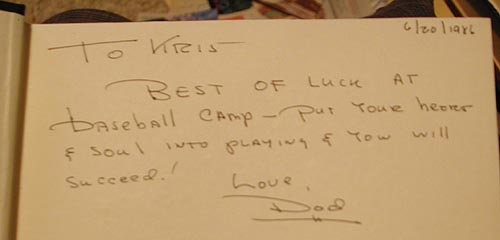 6/20/1986
To Kris
Best of luck at
baseball camp - Put your heart
& soul into playing & you will
succeed!
Love,
Dad